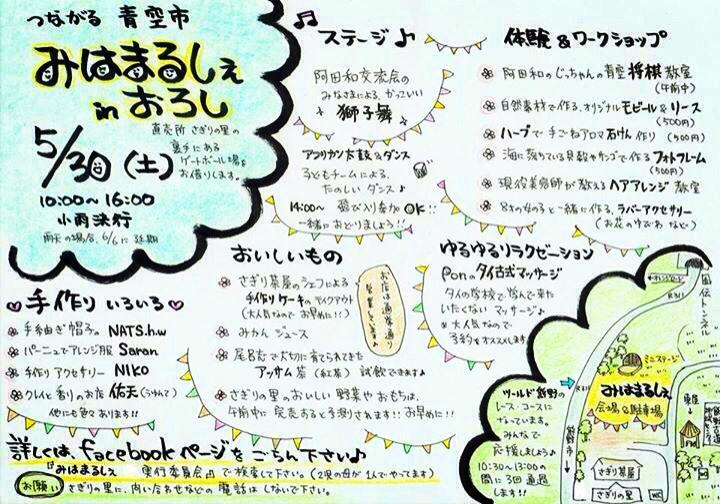 つながる 青空市
みはまるしぇ
in おろし
5/30(土)
直売所 さぎりの里の
裏手にある
ゲートボール場を
お借りします。
10:00~16:00
小雨決行
雨天の場合、6/6に延期
ステージ♪
阿田和交流会の
みなさまによる、かっこいい
獅子舞
アフリカン太鼓&ダンス
子どもチームによる、
たのしい ダンス♪
14:00~ 飛び入り参加OK!!
一緒におどりましょう!!
体験&ワークショップ
阿田和のじっちゃんの青空将棋教室
(午前中)
自然素材で作る、オリジナルモビール&リース
(500円)
ハーブで手ごねアロマ石けん作り (500円)
海に落ちている貝殻やサンゴで作るフォトフレーム
(500円)
現役美容師が教えるヘアアレンジ教室
8才の女の子と一緒に作る、ラバーアクセサリー
(お花のゆびわ など)
手作りいろいろ
手紡ぎ帽子の NATS.h.w
パーニュでアレンジ服 Saran
手作り アクセサリー NIKO
お店 佑天
他にも色々あります!!
おいしいもの
さぎり茶屋のシェフによる
手作りケーキのテイクアウト
(大人気なので お早めに!!)
お店は通常通り
営業してます♪
みかん ジュース
尾呂志で大切に育てられてきた
アッサム茶(紅茶) 試飲できます♪
さぎりの里のおいしい野菜やおもちは、
午前中に完売すると予測されます!!お早めに!!
ゆるゆるリラクゼーション
Ponのタイ古式マッサージ
タイの学校で学んで来た
いたくない マッサージ♪
※大人気なので
予約をオススメします。
ツールド熊野の
レース・コースに
なっています。
みんなで
応援しましょう♪
10:30~13:00の
間に3回通過
します!!
R311
風伝トンネル
ミニステージ
みはまるしぇ
会場&駐車場
熊野市
さぎり茶屋
さぎりの里
詳しくは、facebookページをごらん下さい♪
『みはまるしぇ 実行委員会』で検索して下さい。(2児の母が1人でやってます)
お願い さぎりの里に、問い合わせなどの電話はしないで下さい。